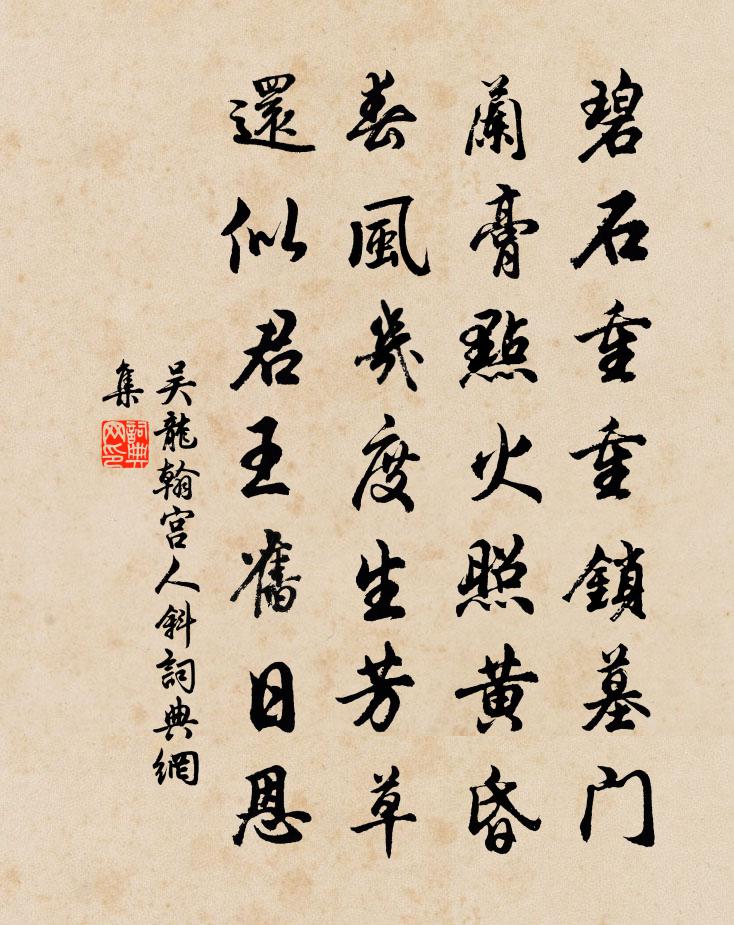 碧石重重鎖墓门
蘭膏點火照黄昏
春風幾度生芳草
還似君王舊日恩
吴龍翰宫人斜詞典網
集
詞典
网印